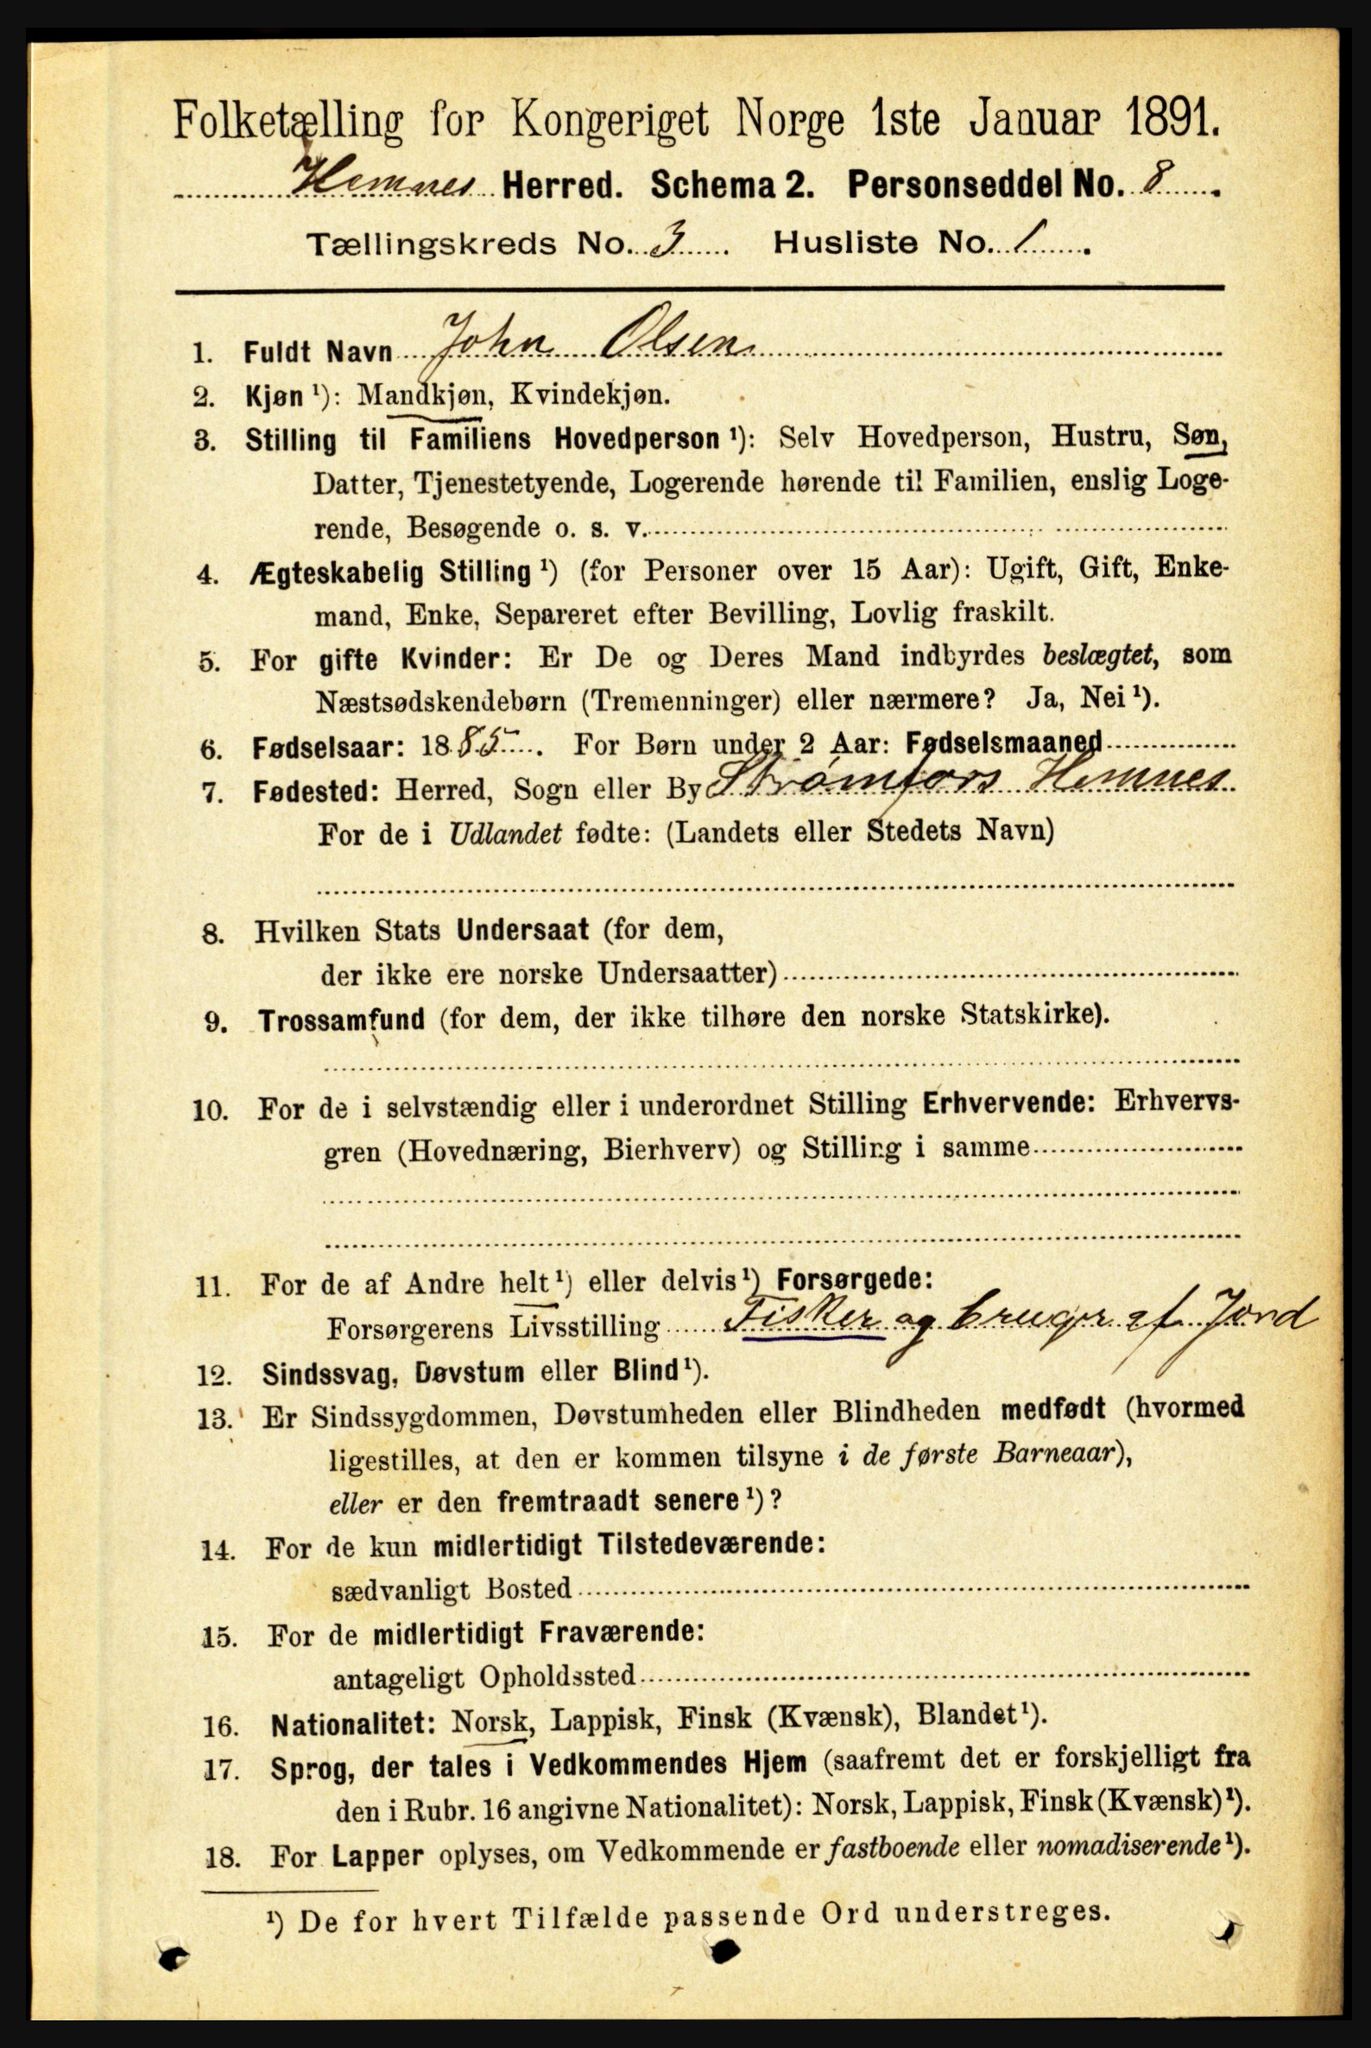 Folketælling for Kongeriget Norge 1ste Januar 1891.
Hemnes Herred. Schema 2. Personseddel No. 8.
Tællingskreds No. 3. Husliste No. 1.
1. Fuldt Navn John Olsen
2. Kjøn ¹): Mandkjøn, Kvindekjøn.
3. Stilling til Familiens Hovedperson ¹): Selv Hovedperson, Hustru, Søn,
Datter, Tjenestetyende, Logerende hørende til Familien, enslig Loge-
rende, Besøgende o. s. v.
4. Ægteskabelig Stilling ¹) (for Personer over 15 Aar): Ugift, Gift, Enke-
mand, Enke, Separeret efter Bevilling, Lovlig fraskilt.
5. For gifte Kvinder: Er De og Deres Mand indbyrdes beslægtet, som
Næstsødskendebørn (Tremenninger) eller nærmere? Ja, Nei ¹).
6. Fødselsaar: 1885. For Børn under 2 Aar: Fødselsmaaned
7. Fødested: Herred, Sogn eller By Strømfors Hemnes
For de i Udlandet fødte: (Landets eller Stedets Navn)
8. Hvilken Stats Undersaat (for dem,
der ikke ere norske Undersaatter)
9. Trossamfund (for dem, der ikke tilhøre den norske Statskirke).
10. For de i selvstændig eller i underordnet Stilling Erhvervende: Erhvervs-
gren (Hovednæring, Bierhverv) og Stilling i samme
11. For de af Andre helt ¹) eller delvis ¹) Forsørgede:
Forsørgerens Livsstilling Fisker og bruger af Jord
12. Sindssvag, Døvstum eller Blind ¹).
13. Er Sindssygdommen, Døvstumheden eller Blindheden medfødt (hvormed
ligestilles, at den er kommen tilsyne i de første Barneaar),
eller er den fremtraadt senere ¹)?
14. For de kun midlertidigt Tilstedeværende:
sædvanligt Bosted
15. For de midlertidigt Fraværende:
antageligt Opholdssted
16. Nationalitet: Norsk, Lappisk, Finsk (Kvænsk), Blandet ¹).
17. Sprog, der tales i Vedkommendes Hjem (saafremt det er forskjelligt fra
den i Rubr. 16 angivne Nationalitet): Norsk, Lappisk, Finsk (Kvænsk) ¹).
18. For Lapper oplyses, om Vedkommende er fastboende eller nomadiserende ¹).
¹) De for hvert Tilfælde passende Ord understreges.